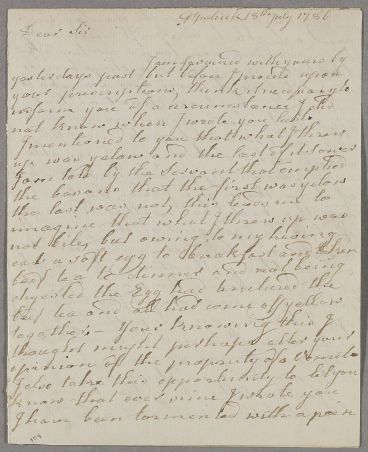 18th July 1786
Dear Sir
I am favoured with yours by
yesterdays post but before I proceed upon
your prescription, think it necessary to
inform you of a circumstance I did
not know when I wrote you last.
I mentioned to you that what I threw
up was yelow and the last of it
I am told by the servant that emptied
the basons that the first was yelow
the last was not, this leads me to
imagine that what I threw up was
not bile, but owing to my having
eat a soft egg to breakfast and then
beef tea to dinner and not being
digested the Egg had tinctured the
beef tea and all had come off yellow
together - Your knowing this I
thought might perhaps alter your
opinion of the propriety of a
I also take this opportunity to let you
know that ever since I wrote you
I have been tormented with a pain